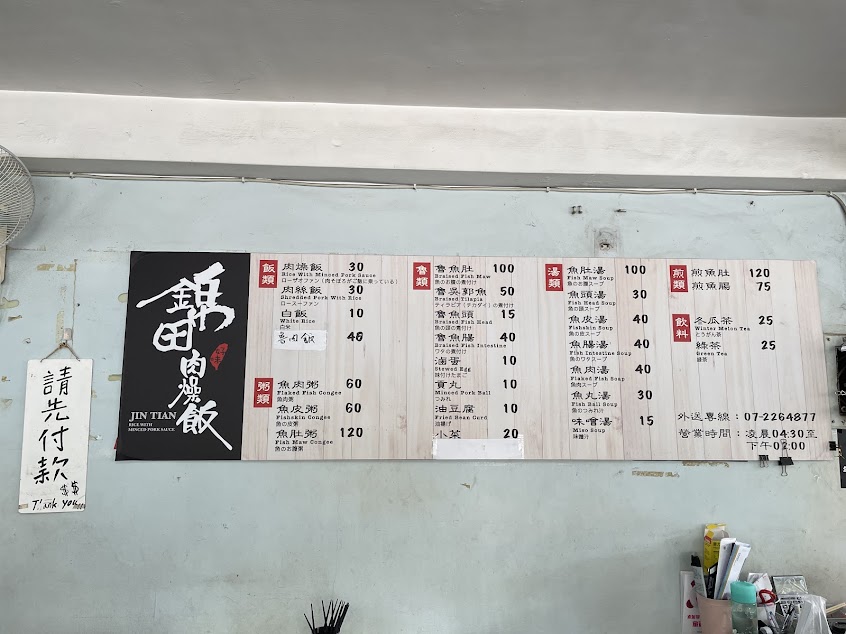 錦田肉燥飯
JIN TIAN
RICE WITH
MINCED PORK SAUCE
請先付款
Thank you
飯類
肉燥飯 30
Rice With Minced Pork Sauce
ローザオファン(肉そぼろがご飯に乗っている)
肉絲飯 30
Shredded Pork With Rice
ロースーファン
白飯 10
White Rice
白米
魯肉飯 40
粥類
魚肉粥 60
Flaked Fish Congee
魚肉粥
魚皮粥 60
Fishskin Congee
魚の皮粥
魚肚粥 120
Fish Maw Congee
魚のお腹粥
魯類
魯魚肚 100
Braised Fish Maw
魚のお腹の煮付け
魯吳郭魚 50
Braised Tilapia
ティラピア(チカダイ)の煮付け
魯魚頭 15
Braised Fish Head
魚の頭の煮付け
魯魚腸 40
Braised Fish Intestine
ワタの煮付け
滷蛋 10
Stewed Egg
味付けたまご
貢丸 10
Minced Pork Ball
つみれ
油豆腐 10
Fried Bean Curd
油揚げ
小菜 20
湯類
魚肚湯 100
Fish Maw Soup
魚のお腹スープ
魚頭湯 30
Fish Head Soup
魚の頭スープ
魚皮湯 40
Fishskin Soup
魚の皮スープ
魚腸湯 40
Fish Intestine Soup
魚のワタスープ
魚肉湯 40
Flaked Fish Soup
魚肉スープ
魚丸湯 30
Fish Ball Soup
魚のつみれ汁
味噌湯 15
Miso Soup
味噌汁
煎類
煎魚肚 120
煎魚腸 75
飲料
冬瓜茶 25
Winter Melon Tea
とうがん茶
綠茶 25
Green Tea
緑茶
外送專線:07-2264877
營業時間:凌晨04:30至
下午02:00